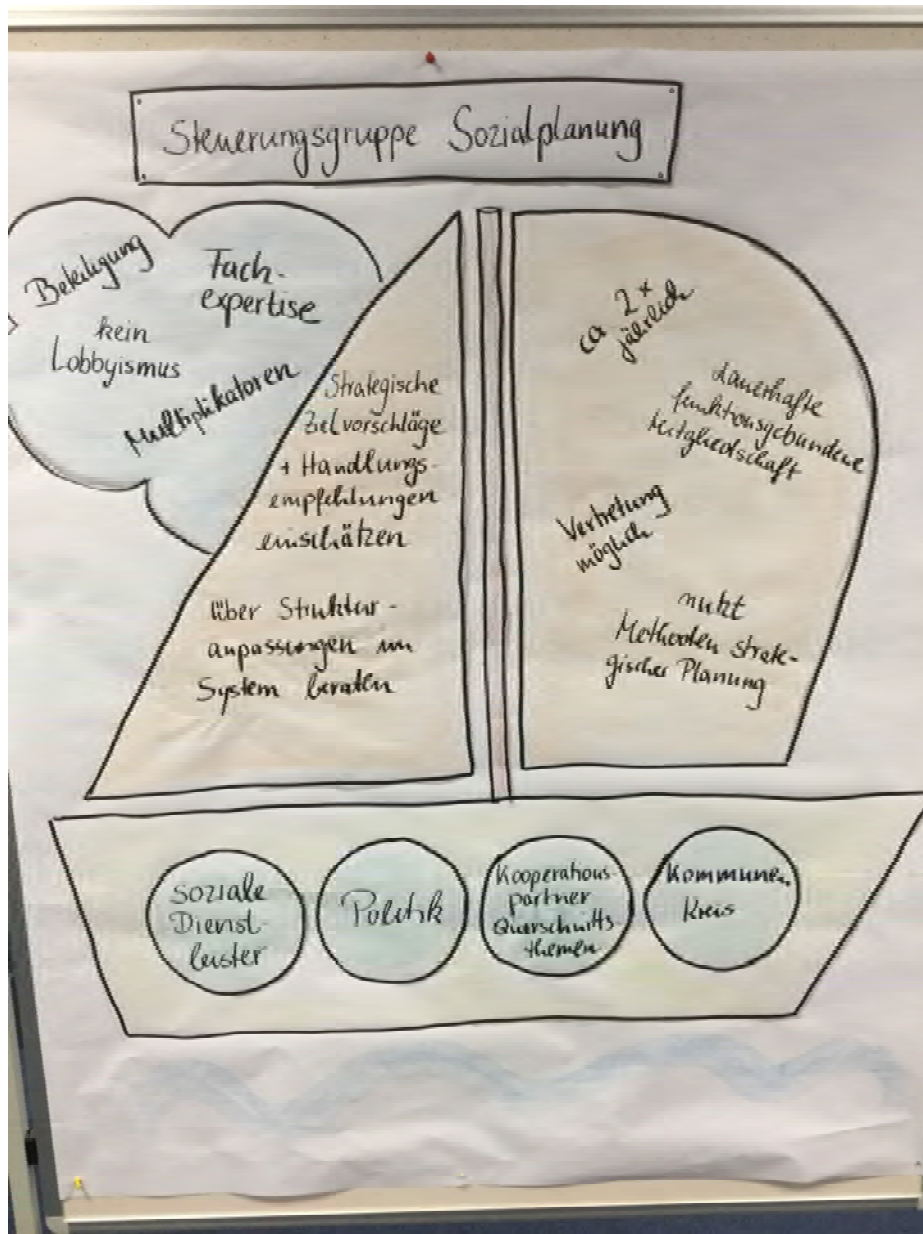 Steuerungsgruppe Sozialplanung
Beteiligung
Fach-
expertise
kein
Lobbyismus
Multiplikatoren
Strategische
Zielvorschläge
+ Handlungs-
empfehlungen
einschätzen
über Struktur-
anpassungen im
System beraten
ca 2x
jährlich
dauerhafte
funktionsgebundene
Mitgliedschaft
Vertretung
möglich
nutzt
Methoden strate-
gischer Planung
Soziale
Dienst-
leister
Politik
Kooperations-
partner
Querschnitts-
themen
Kommunen,
Kreis